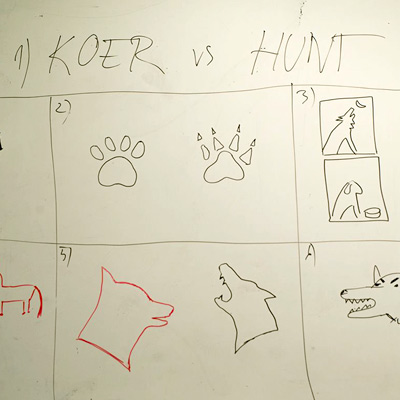 1) KOER vs HUNT
2) 3)
5)